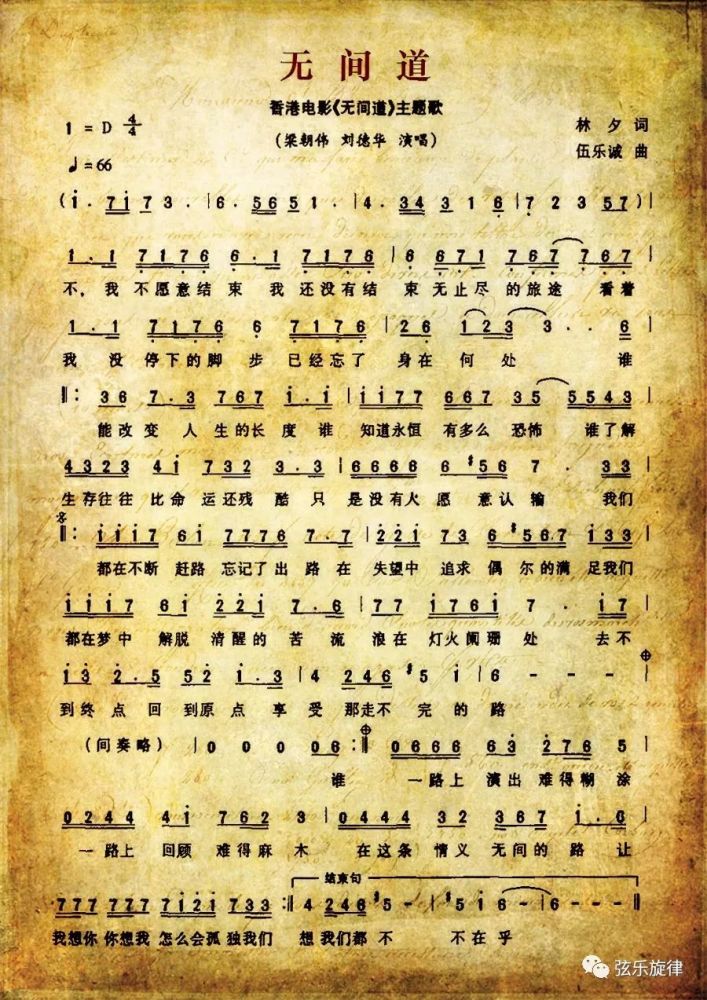 无间道
香港电影《无间道》主题歌
1 = D 4/4
(梁朝伟 刘德华 演唱)
林夕 词
♩=66
伍乐诚 曲
(i· 7i73· | 6· 5651· | 4· 34316 | 72357)
1·1 7176 6·1 7176 | 6 671 767 767 |
不, 我 不愿意结 束 我 还没有结 束 无止尽 的旅途 看着
1·1 7176 6 7176 | 26 123 3· ·6 |
我 没 停下的脚 步 已经忘了 身在 何处 谁
‖: 36 7·3 767 i·i | ii77 667 35 5543 |
能改 变 人 生的长 度 谁 知道永恒 有多么 恐怖 谁了解
4323 4i 732 3·3 | 6666 6 #567· 33 |
生存往往 比命 运还残 酷 只 是没有火 愿 意认输 我们
𝄋
‖: iii7 6i 7776 7·7 | 22i 73 6 #567 i33 |
都在不断 赶路 忘记了 出 路 在 失望中 追求 偶 尔的满 足我们
iii7 6i 22i 7·6 | 77 i76i 7· i7 |
都在梦中 解脱 清醒的 苦 流 浪在 灯火阑珊 处 去不
⊕
i3 2·5 52 i·3 | 4 246 #5 i | 6 - - - |
到终 点 回 到原 点 享 受 那走不 完 的 路
(间奏略) | 0 0 0 06 :‖ 0666 63 276 5 |
⊕
谁 一路上 演出 难得糊 涂
0244 4i 762 3 | 0444 32 367 i·6 |
一路上 回顾 难得麻 木 在这条 情义 无间的 路 让
结束句
777 777 7i2i 733 :‖ 4 246 #5 - | #5i 6 - | 6 - - - ‖
我想你 你想我 怎么会孤 独我们 想 我们都 不 不在 乎
弦乐旋律